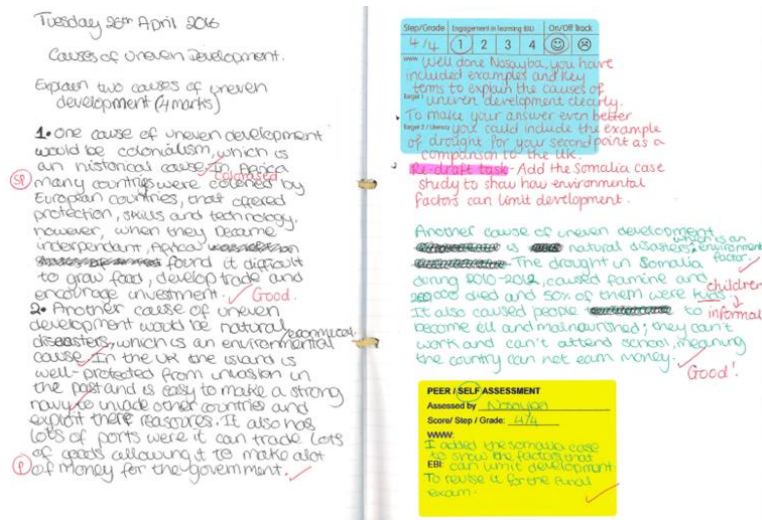 Tuesday 26th April 2016
Causes of uneven Development.
Explain two causes of uneven
development (4 marks)
1. One cause of uneven development
would be colonialism, which is
an historical cause. In Africa
colonised
SP many countries were colened by
European countries, that offered
protection, skills and technology.
however, when they became
independant, Africa
found it difficult
to grow food, develop trade and
encourage investment. Good.
2. Another cause of uneven
development would be natural
economical
disasters, which is an environmental
cause. In the UK the island is
well-protected from invasion in
the past and is easy to make a strong
navy to invade other countries and
exploit there reasources. It also has
lots of ports were it can trade lots
of goods allowing it to make alot
P of money for the government.
Step/Grade Engagement in learning (EiL) On/Off Track
4/4 1 2 3 4
WWW Well done Nosayba, you have
included examples and key
terms to explain the causes of
Target 1 uneven development clearly.
To make your answer even better
Target 2 / Literacy you could include the example
of drought for your second point as a
comparison to the UK.
Re-draft task - Add the Somalia case
study to show how environmental
factors can limit development.
Another cause of uneven development
is natural disasters, which is an environmental
factor.
The drought in Somalia
during 2010-2012, caused famine and
died and 50% of them were kids.
children
informal
It also caused people to
become ill and malnourished; they can't
work and can't attend school, meaning
the country can not earn money.
Good!
PEER / SELF ASSESSMENT
Assessed by Nosayba
Score/ Step / Grade: 4/4
WWW:
I added the somalia case
to show the factors that
EBI: can limit development.
To revise it for the final
exam.